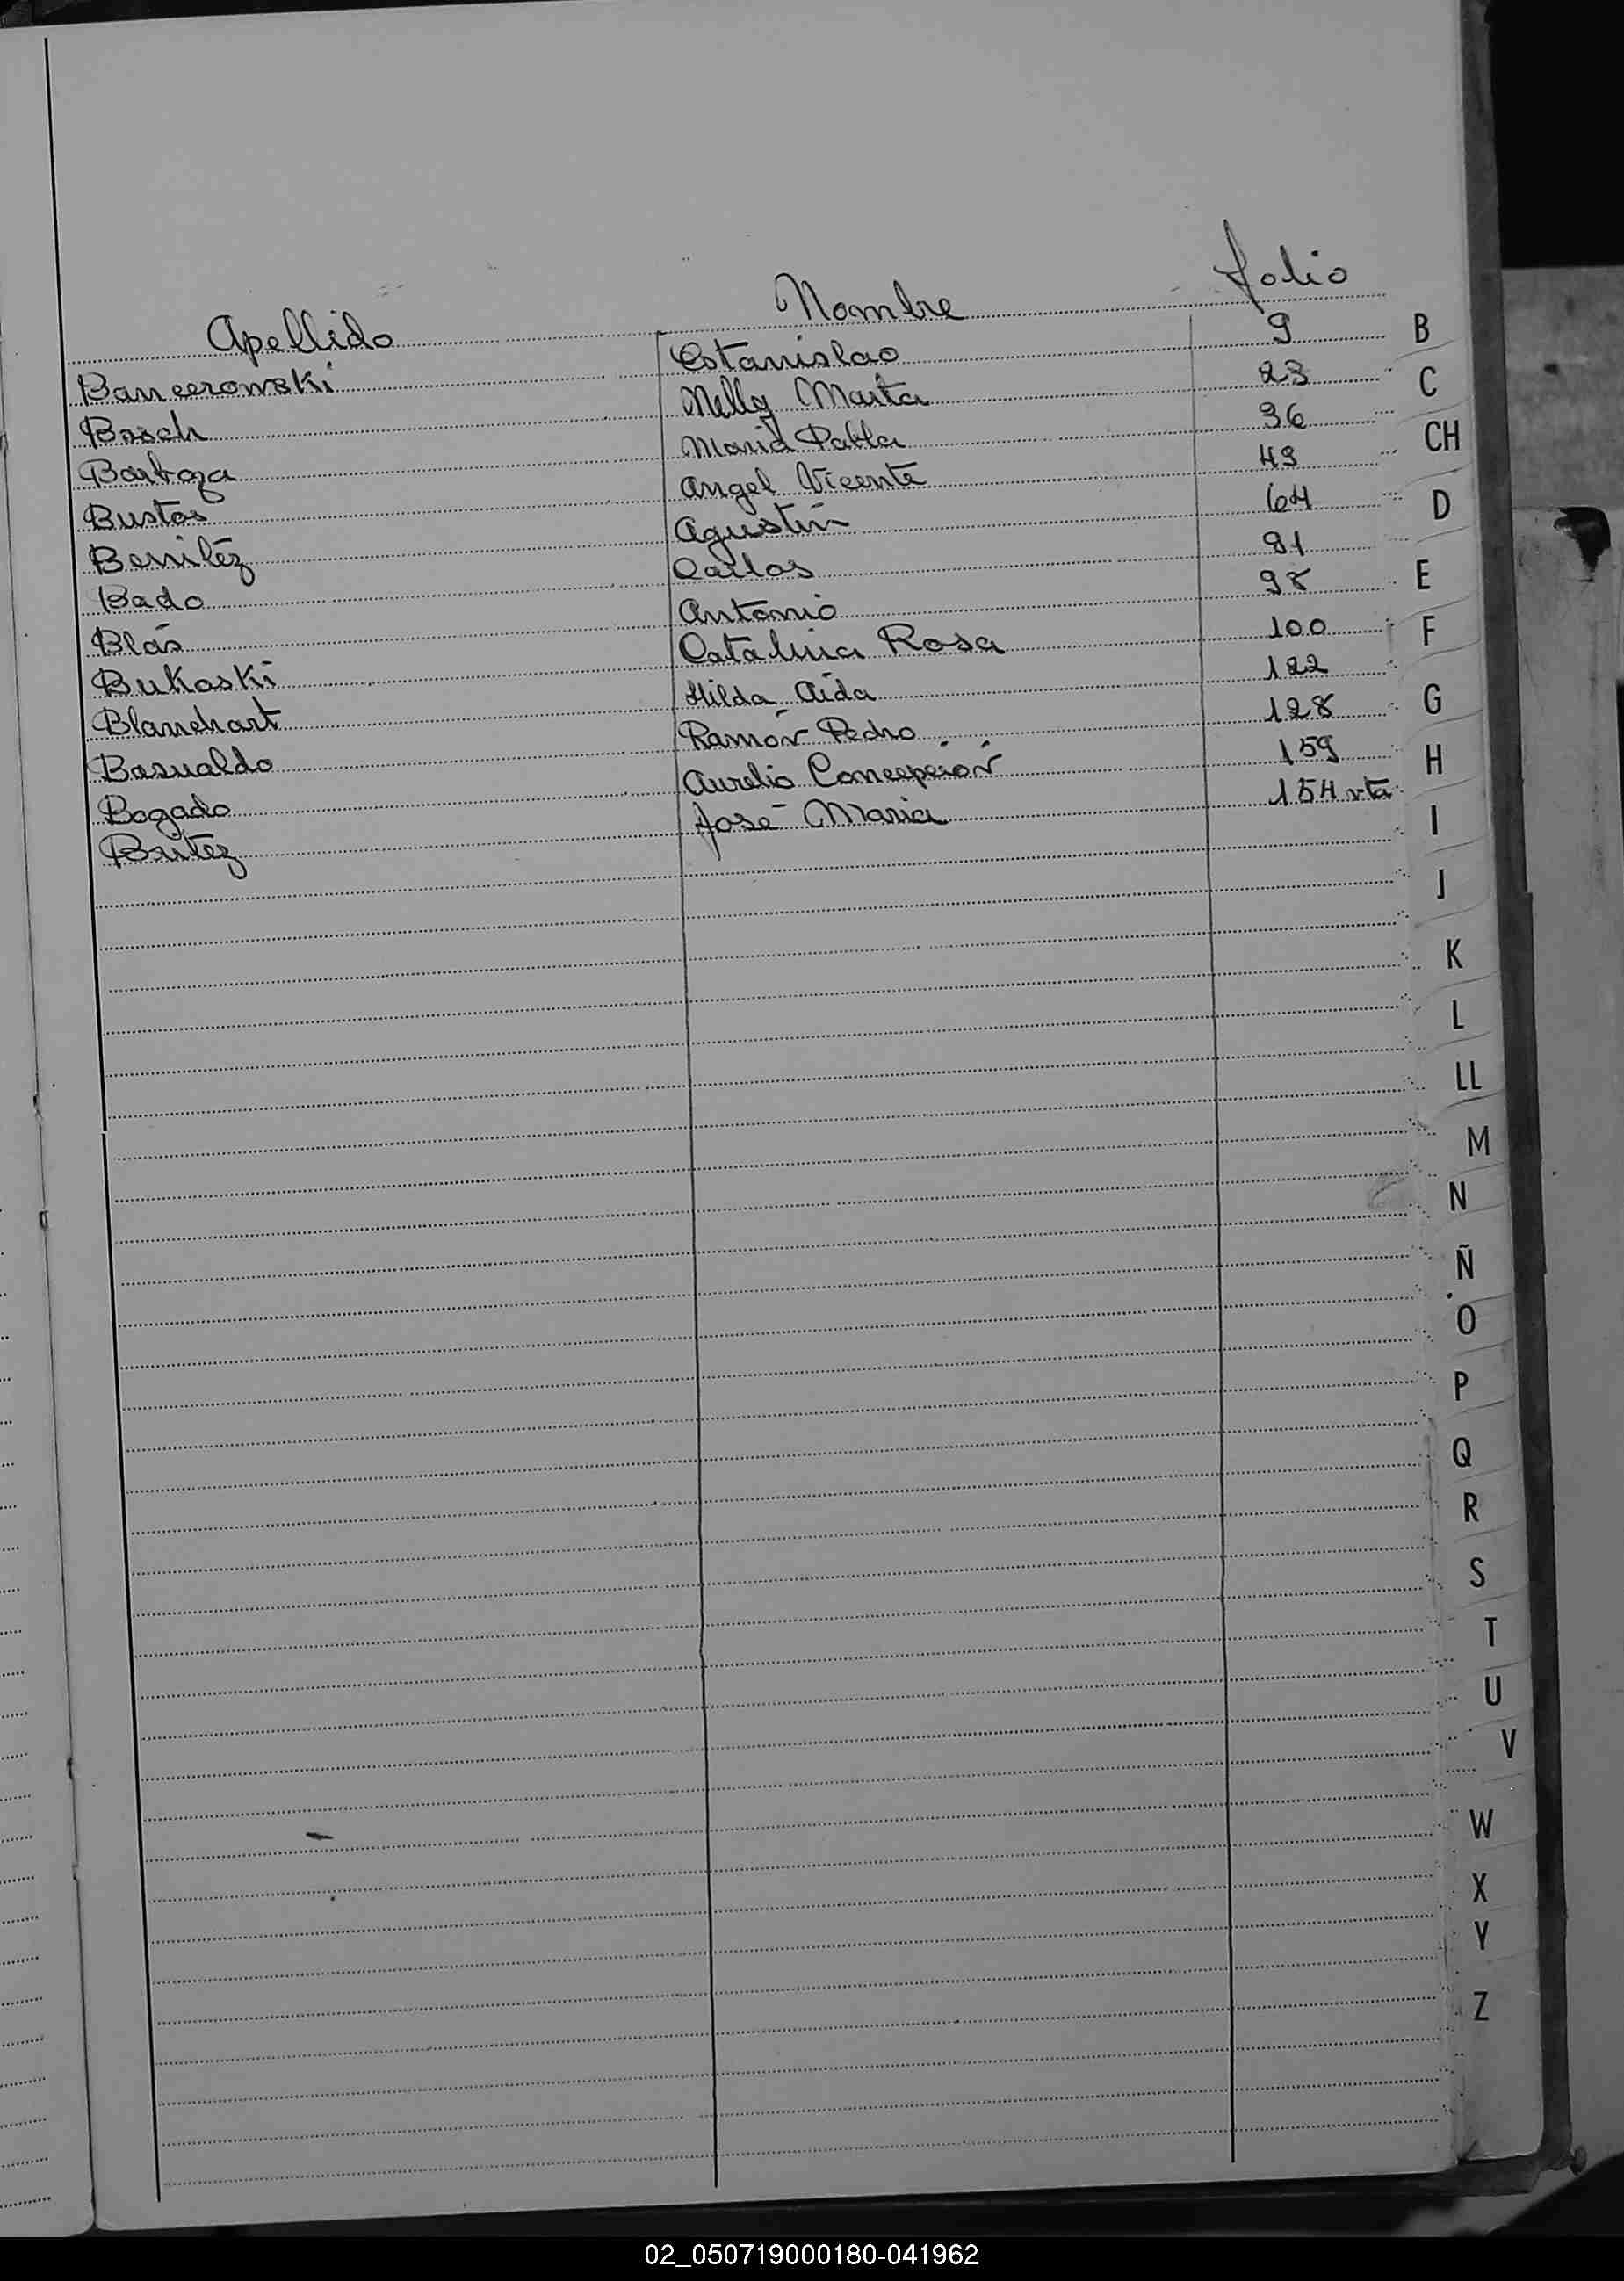 Apellido Nombre folio
Bancerowski Estanislao 9 B
Bosch Nelly Marta 23 C
Barboza María Pabla 36 CH
Bustos Angel Vicente 49
Benitéz Agustín 64 D
Bado Carlos 91
Blás Antonio 98 E
Bukoski Catalina Rosa 100 F
Blanchart Hilda Aída 122
Basualdo Ramón Pedro 128 G
Bogado Aurelio Concepción 159 H
Britéz José María 154 vta
I
J
K
L
LL
M
N
Ñ
O
P
Q
R
S
T
U
V
W
X
Y
Z
02_050719000180-041962